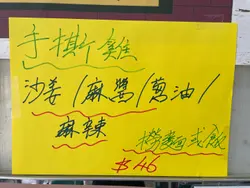 手撕雞
沙姜/麻醬/蔥油/
麻辣
撈麵或飯
$46